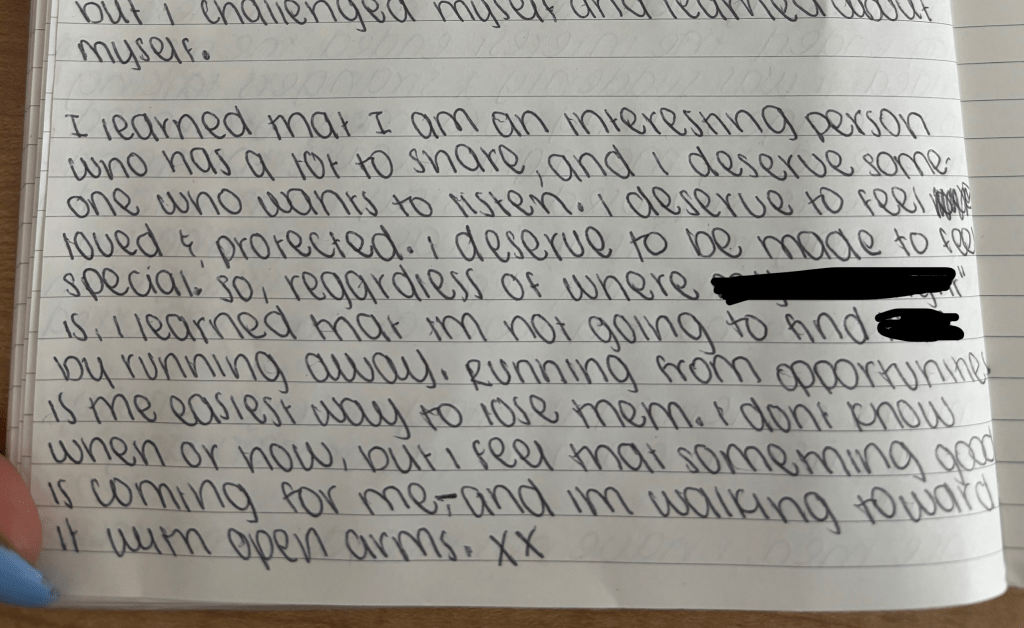 but i challenged myself and learned about
myself.
I learned that I am an interesting person
who has a lot to share, and i deserve some-
one who wants to listen. i deserve to feel
loved & protected. i deserve to be made to feel
special. so, regardless of where
is, i learned that im not going to find
by running away. Running from opportunities
is the easiest way to lose them. i dont know
when or how, but i feel that something good
is coming for me, and im walking toward
it with open arms. xx